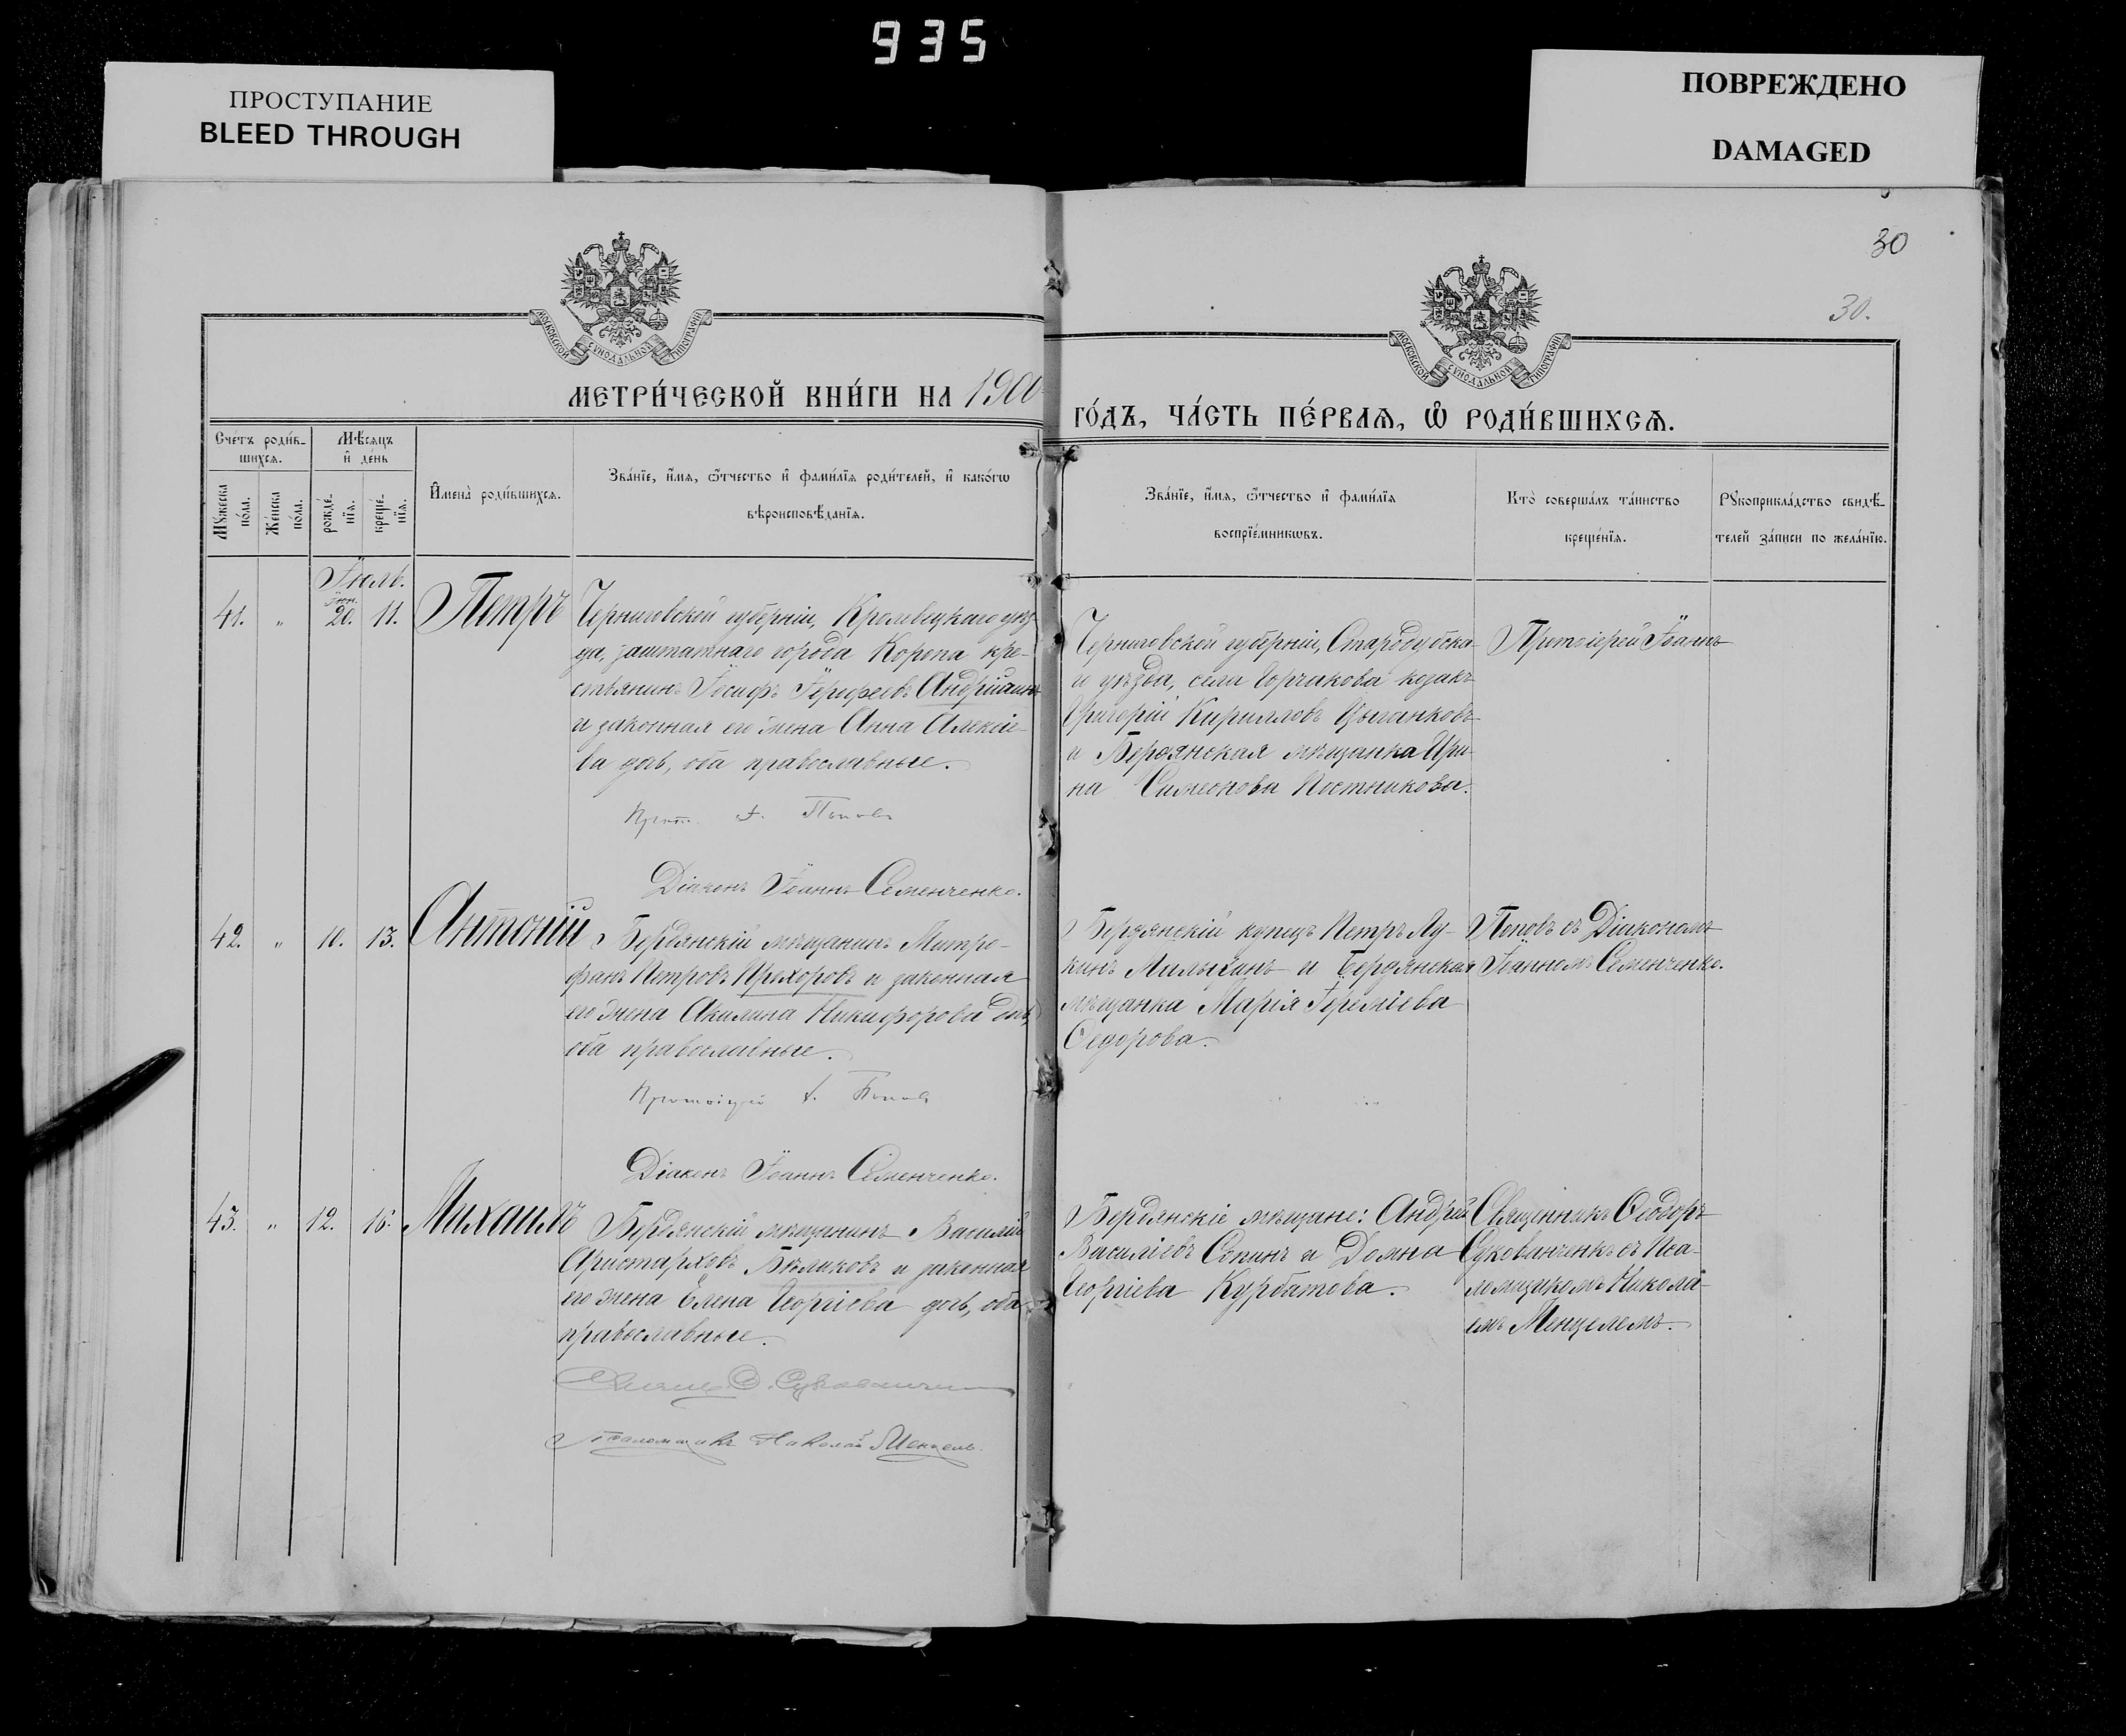 935
ПРОСТУПАНИЕ
BLEED THROUGH
ПОВРЕЖДЕНО
DAMAGED
30
30.
МОСКОВСКОЙ СѴНОДАЛЬНОЙ ТИПОГРАФІИ
МОСКОВСКОЙ СѴНОДАЛЬНОЙ ТИПОГРАФІИ
МЕТРИ́ЧЕСКОЙ КНИ́ГИ НА 1900
ГО́ДЪ, ЧА́СТЬ ПЕ́РВАѦ, Ѡ҆ РОДИ́ВШИХСѦ.
Сче́тъ роди́в-
шихсѧ.
Мѣ́сѧцъ
и҆ де́нь
Мꙋ́жеска
по́ла.
Же́нска
по́ла.
рожде́-
нїѧ.
креще́-
нїѧ.
И҆мена̀ роди́вшихсѧ.
Зва́нїе, и҆́мѧ, ѻ҆́тчество и҆ фами́лїѧ роди́телей, и҆ како́гѡ
вѣроисповѣ́данїѧ.
Зва́нїе, и҆́мѧ, ѻ҆́тчество и҆ фами́лїѧ
воспрїе́мникѡвъ.
Кто̀ соверша́лъ та́инство
креще́нїѧ.
Рꙋкоприкла́дство свидѣ́-
телей за́писи по жела́нїю.
Іюль.
Іюн.
41. " 20. 11. Петръ
Черниговской губерніи, Кролевецкаго уѣз-
да, заштатнаго города Коропа кре-
стьянинъ Іосифъ Іерофеевъ Андрiашъ
и законная его жена Анна Алексіе-
ва дочь, оба православные.
Прот. І. Поповъ
Діаконъ Іоаннъ Семенченко.
Черниговской губерніи, Стародубска-
го уѣзда, села Горчакова козакъ
Григорій Кирилловъ Цыганковъ
и Бердянская мѣщанка Ири-
на Симеонова Постникова.
Протоіерей Іоаннъ
42. " 10. 13. Антоній
Бердянскій мѣщанинъ Митро-
фанъ Петровъ Прохоровъ и законная
его жена Акилина Никифорова дочь,
оба православные.
Протоіерей І. Поповъ
Діаконъ Іоаннъ Семенченко.
Бердянскій купецъ Петръ Лу-
кинъ Малыхинъ и Бердянская
мѣщанка Марія Іереміева
Ѳедорова.
Поповъ съ Діакономъ
Іоанномъ Семенченко.
43. " 12. 16. Михаилъ
Бердянскій мѣщанинъ Василій
Аристарховъ Бѣликовъ и законная
его жена Елена Георгіева дочь, оба
православные.
Священ. Ѳ. Сукованченко
Псаломщикъ Николай Менцель.
Бердянскіе мѣщане: Андрей
Василіевъ Сопинъ и Домна
Георгіева Курбатова.
Священникъ Ѳеодоръ
Сукованченкъ съ Пса-
ломщикомъ Никола-
емъ Менцелемъ.